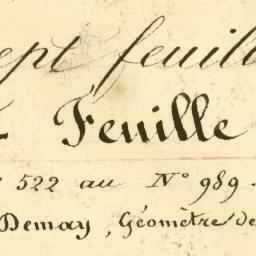 sept feuill
Feuille
522 au N° 989.
Demay, Géomètre de